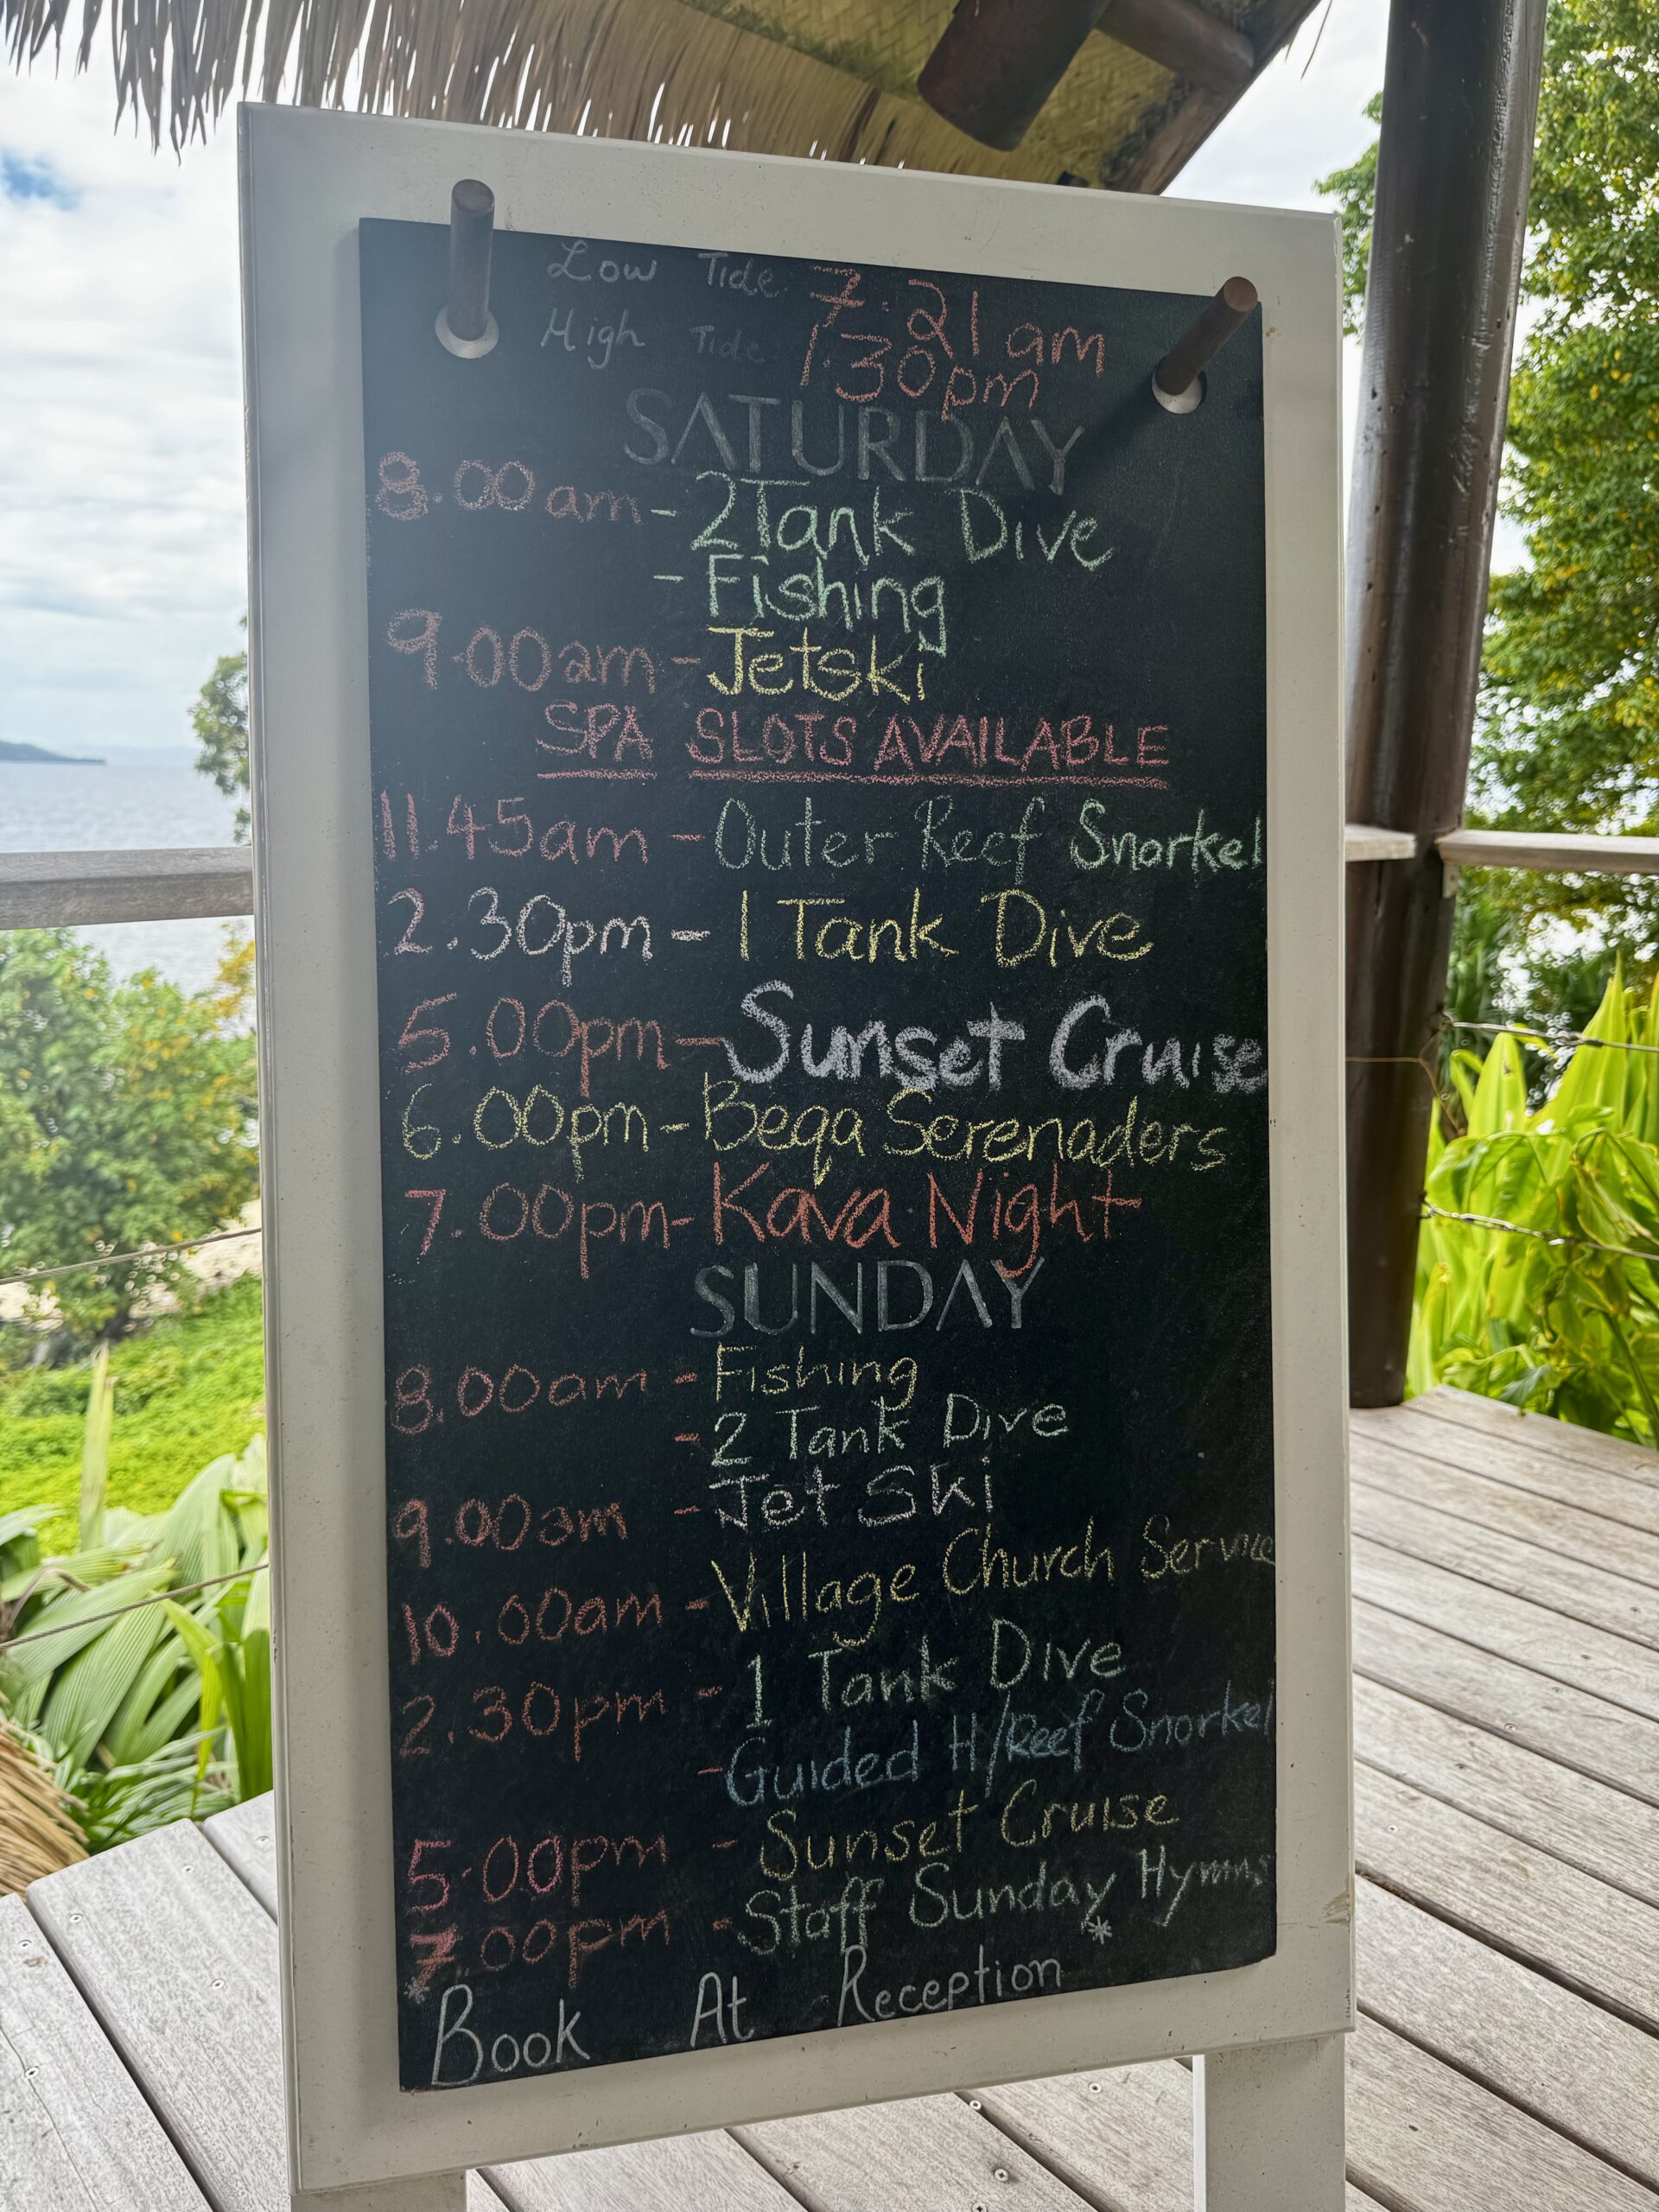 Low Tide 7.21am
High Tide 1.30pm
SATURDAY
8.00am - 2 Tank Dive
- Fishing
9.00am - Jetski
SPA SLOTS AVAILABLE
11.45am - Outer Reef Snorkel
2.30pm - 1 Tank Dive
5.00pm - Sunset Cruise
6.00pm - Beqa Serenaders
7.00pm - Kava Night
SUNDAY
8.00am - Fishing
- 2 Tank Dive
9.00am - Jet Ski
10.00am - Village Church Service
2.30pm - 1 Tank Dive
- Guided H/Reef Snorkel
5.00pm - Sunset Cruise
7.00pm - Staff Sunday Hymns
* Book At Reception *